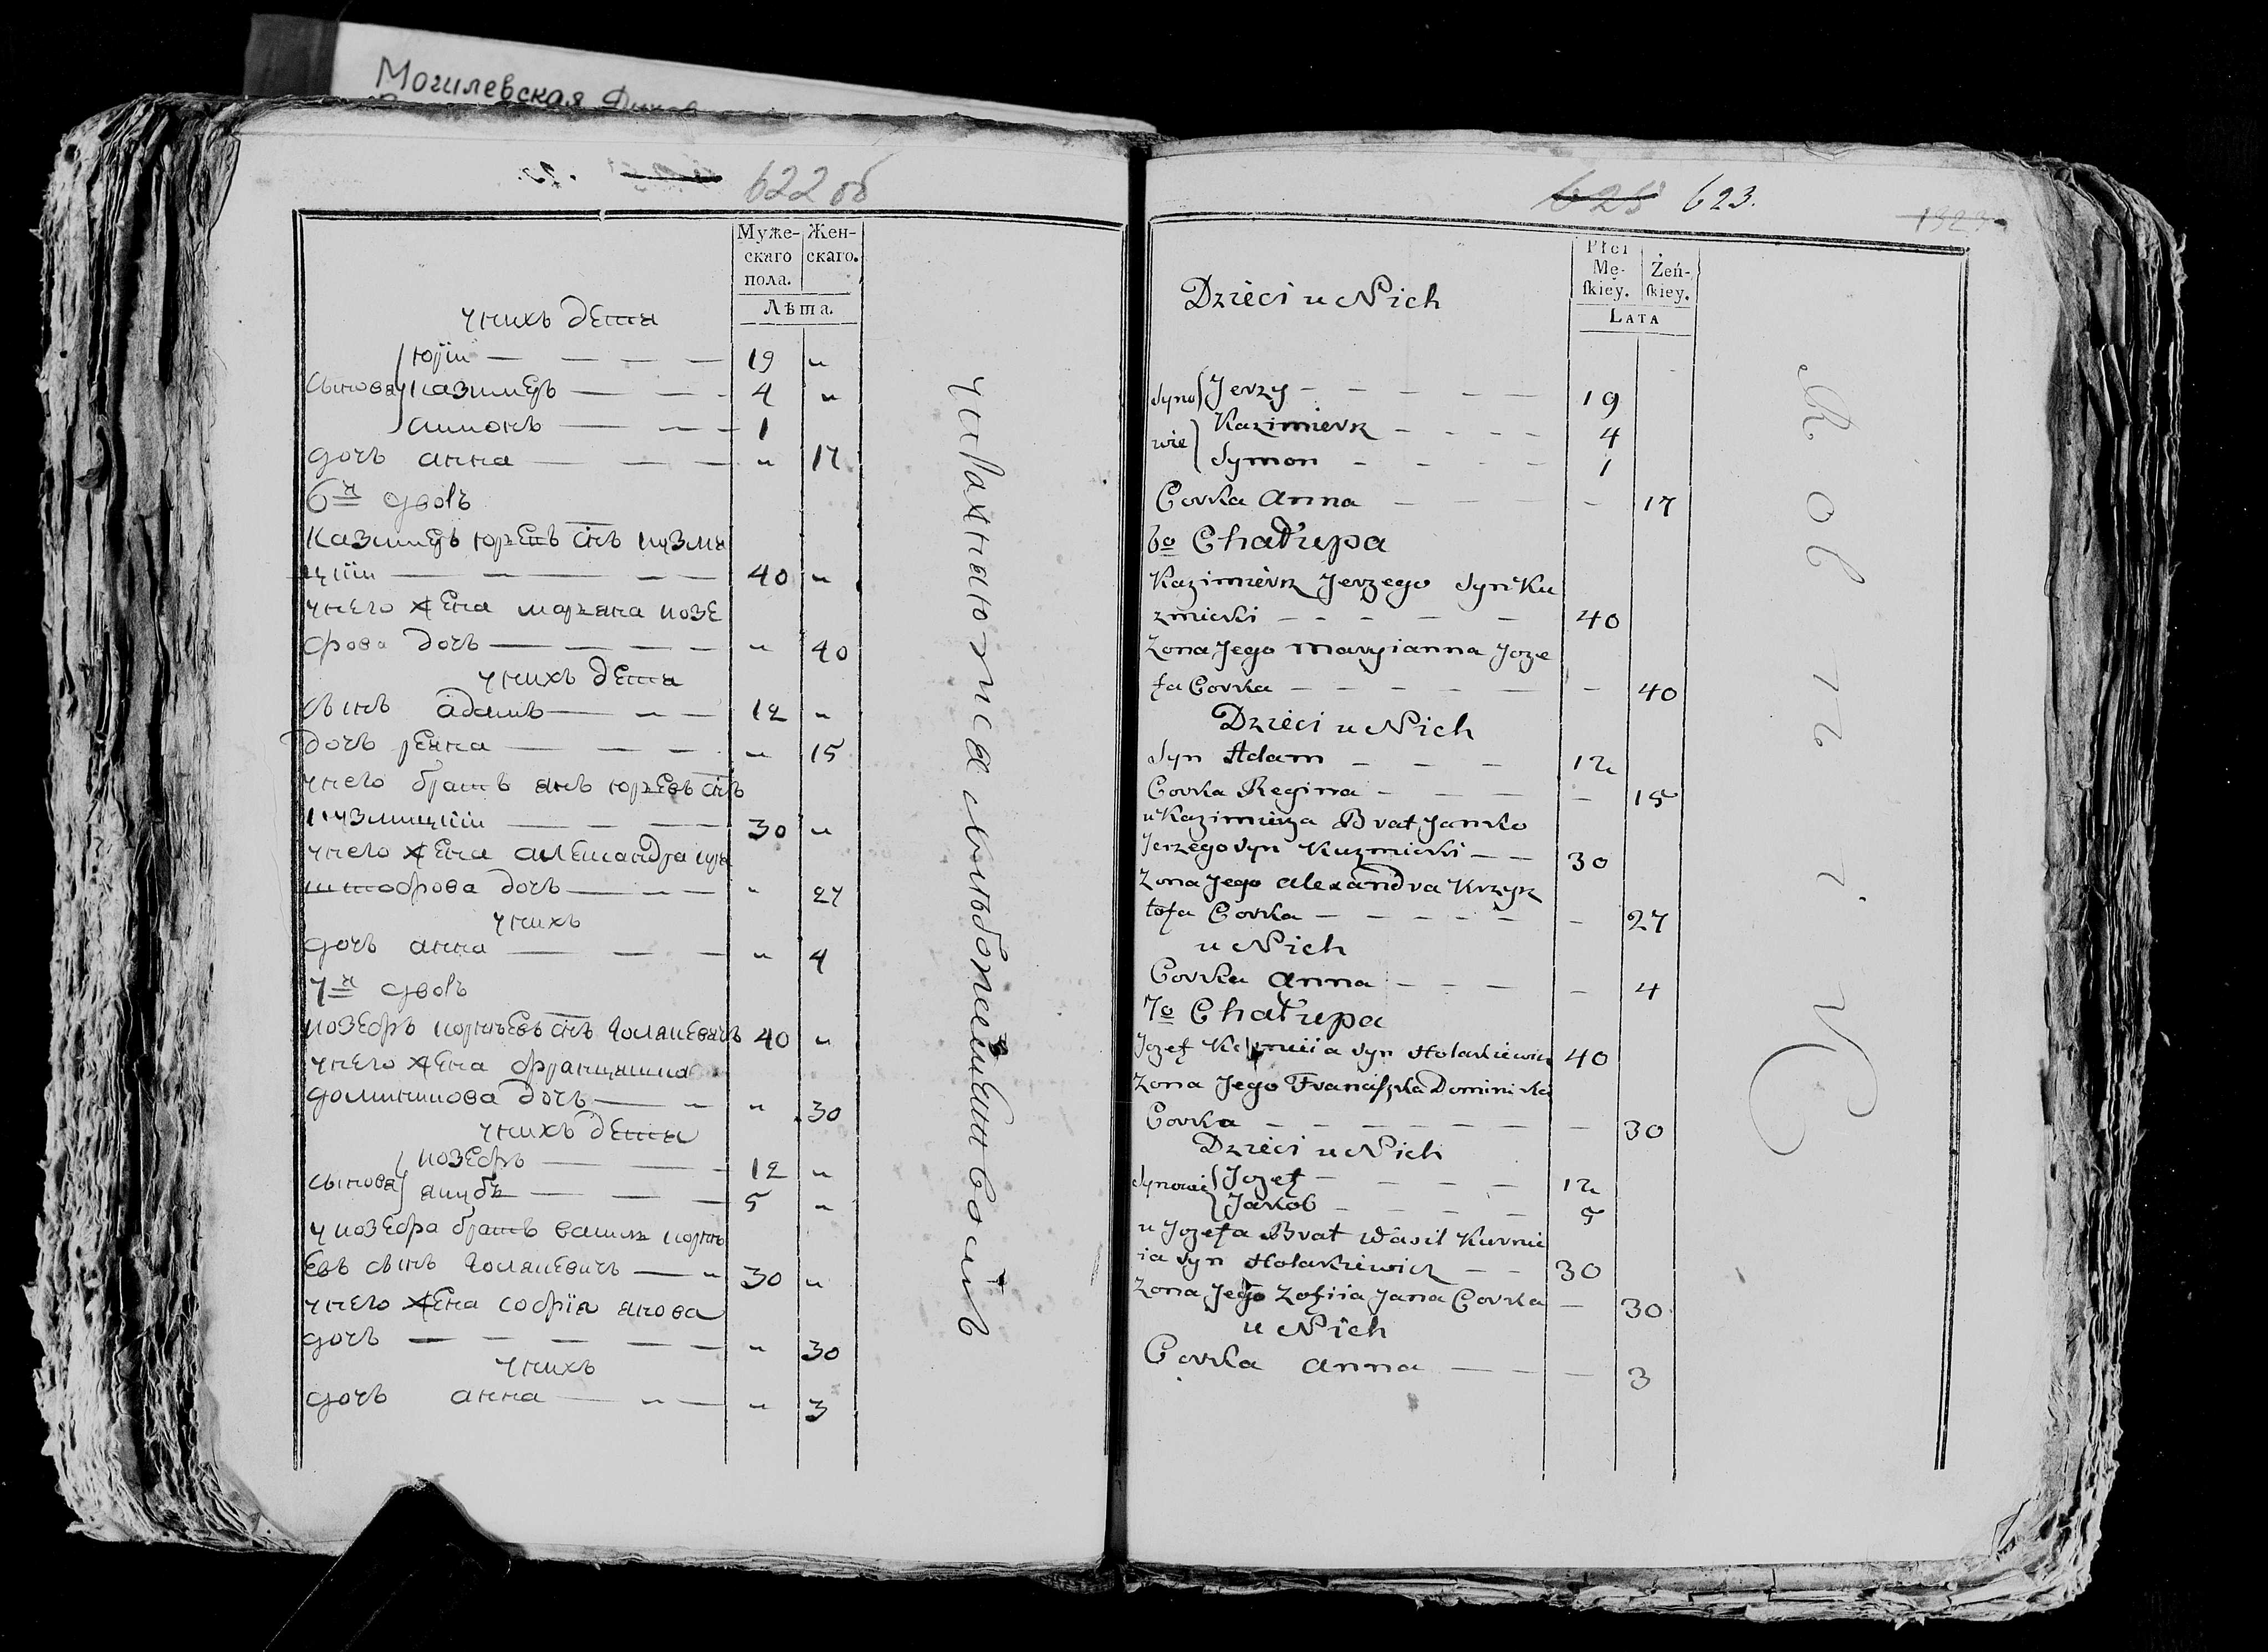 Могилевская
622 об
Муже-
скаго
пола.
Жен-
скаго.
Лѣта.
унихъ дети
Юрїи — — — — 19 "
сынова казимеръ — — — 4 "
симонъ — — — 1 "
дочь анна — — — " 17
6й дворъ
Казимеръ юревъ снъ кузми
цкїи — — — — 40 "
унего жена марьяна иозе
фова дочь — — — — " 40
унихъ дети
сынъ адамъ — — — 12 "
дочь реина — — — " 15
унего братъ янъ юревъ снъ
кузмицкїи — — — 30 "
унего жена александра кри
штофова дочь — — — " 27
унихъ
дочь анна — — — " 4
7й дворъ
иозефъ корнѣевъ снъ голакевичъ 40 "
унего жена францишка
доминикова дочь — — " 30
унихъ дети
иозефъ — — — 12 "
сынова якубъ — — — 5 "
у иозефа братъ василь корнѣ
евъ сынъ голакевичъ — — 30 "
унего жена софїя янова
дочь — — — — — " 30
унихъ
дочь анна — — — " 3
623.
Płci
Mę-
skiey.
Żeń-
skiey.
Lata
Dzieci u Nich
Syno Jerzy — — — — 19
wie Kazimierz — — — — 4
Symon — — — — 1
Corka Anna — — — — 17
6o Chałupa
Kazimierz Jerzego Syn Ku
zmicki — — — — — 40
Zona Jego Maryianna Joze
fa Corka — — — — — 40
Dzieci u Nich
Syn Adam — — — 12
Corka Regina — — — — 15
u Kazimierza Brat Janko
Jerzego Syn Kuzmicki — — 30
Zona Jego Alexandra Krzysz
tofa Corka — — — — — 27
u Nich
Corka Anna — — — — 4
7o Chałupa
Jozef Syn Holakiewicz 40
Zona Jego Franciszka Dominika
Corka — — — — — — 30
Dzieci u Nich
Synowie Jozef — — — — 12
Jakob — — — — 5
u Jozefa Brat Wasil Kornie
ia Syn Holakiewicz — — 30
Zona Jego Zofiia Jana Corka — 30
u Nich
Corka Anna — — — 3